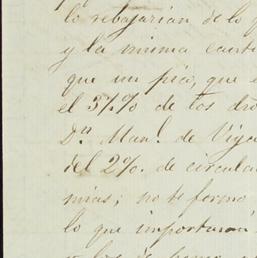 lo rebajarían de lo
y la misma canti
que un pico, que
el 5½% de los dro
Dⁿ Manˡ. de Viya
del 2%. de circula
mias; no te formo
lo que importaran